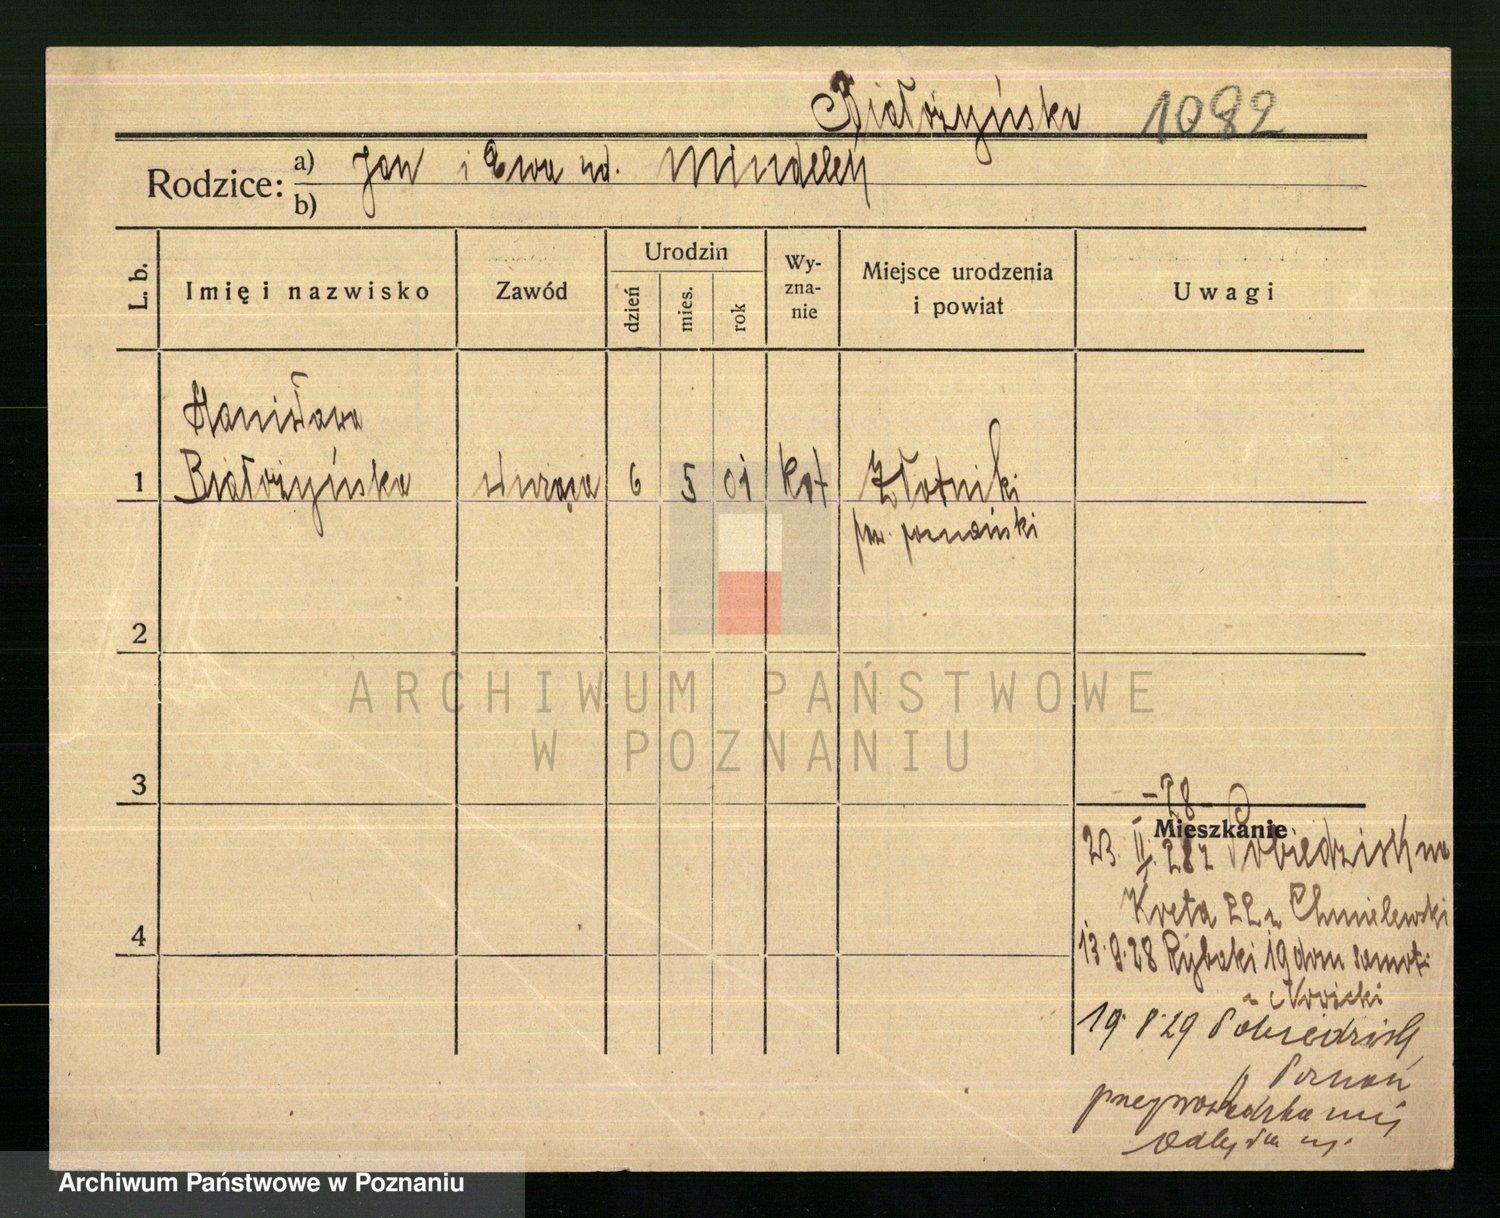 Białożyńska 1082
Rodzice: a) Jan i Ewa ud. Mindeleh
b)
L. b.
Imię i nazwisko
Zawód
Urodzin
dzień
mies.
rok
Wy-
zna-
nie
Miejsce urodzenia
i powiat
Uwagi
Stanisława
1 Białożyńska służąca 6 5 01 kat Złotniki
pow. poznański
2
ARCHIWUM PAŃSTWOWE
W POZNANIU
3
- 28 -
Mieszkanie
23. II. 28 z Pobiedzisk na
Kręta 22 Chmielewski
4
13.9.28 Rybaki 19 dom
Nowicki
19. 8. 29 Pobiedzisk
Poznań
Archiwum Państwowe w Poznaniu